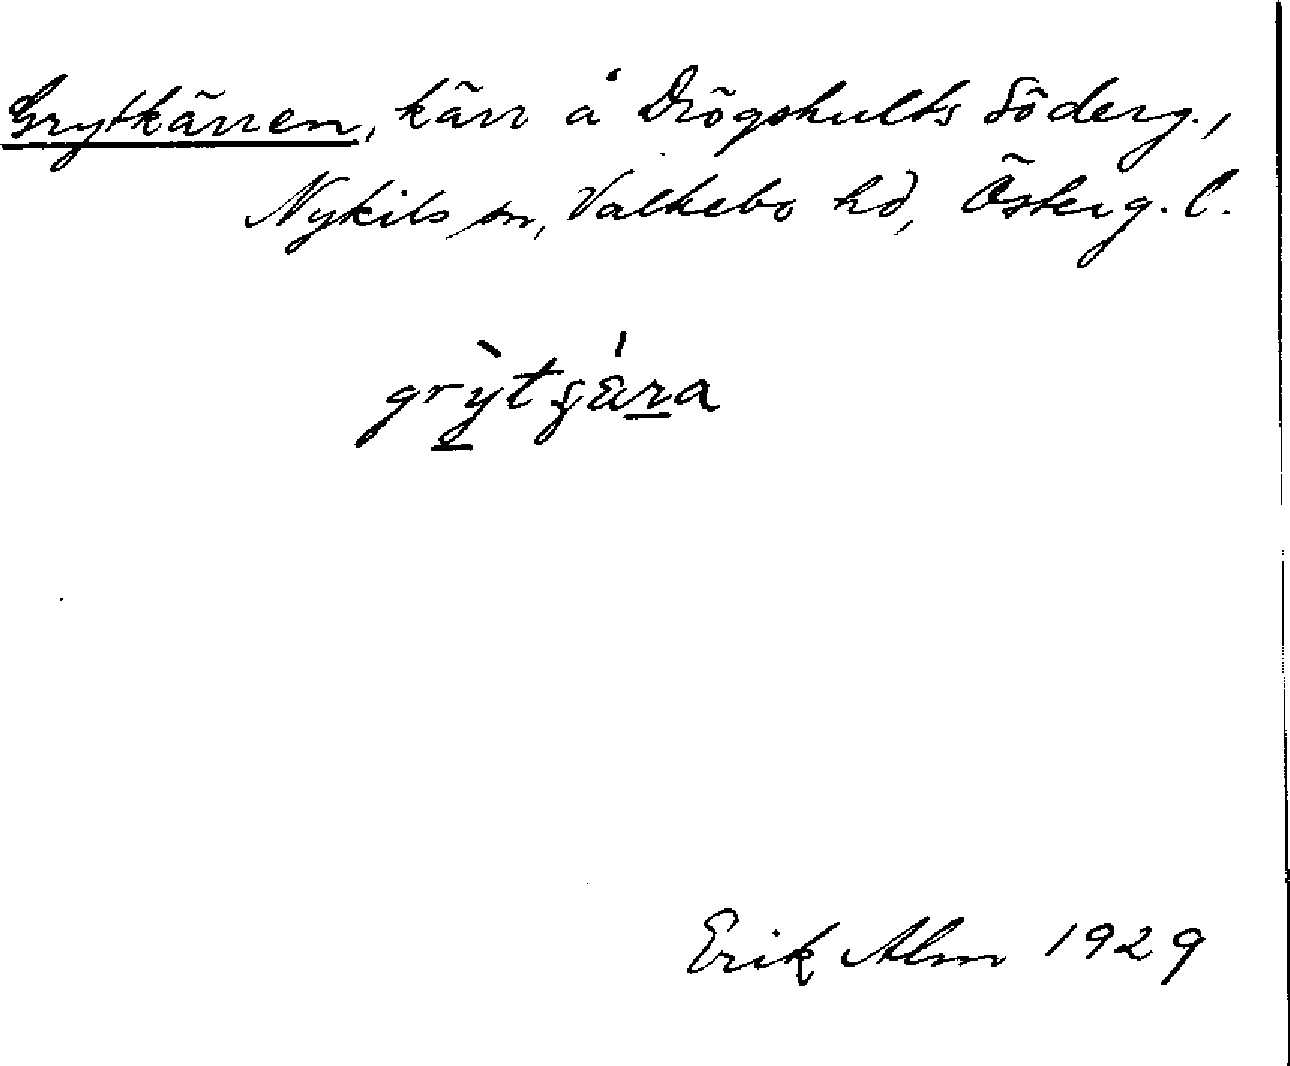 Grytkärren, kärr å Drögshults Söderg.,
Nykils sn, Valkebo hd, Österg. l.
grỳtʂä́ra
Erik Alm 1929